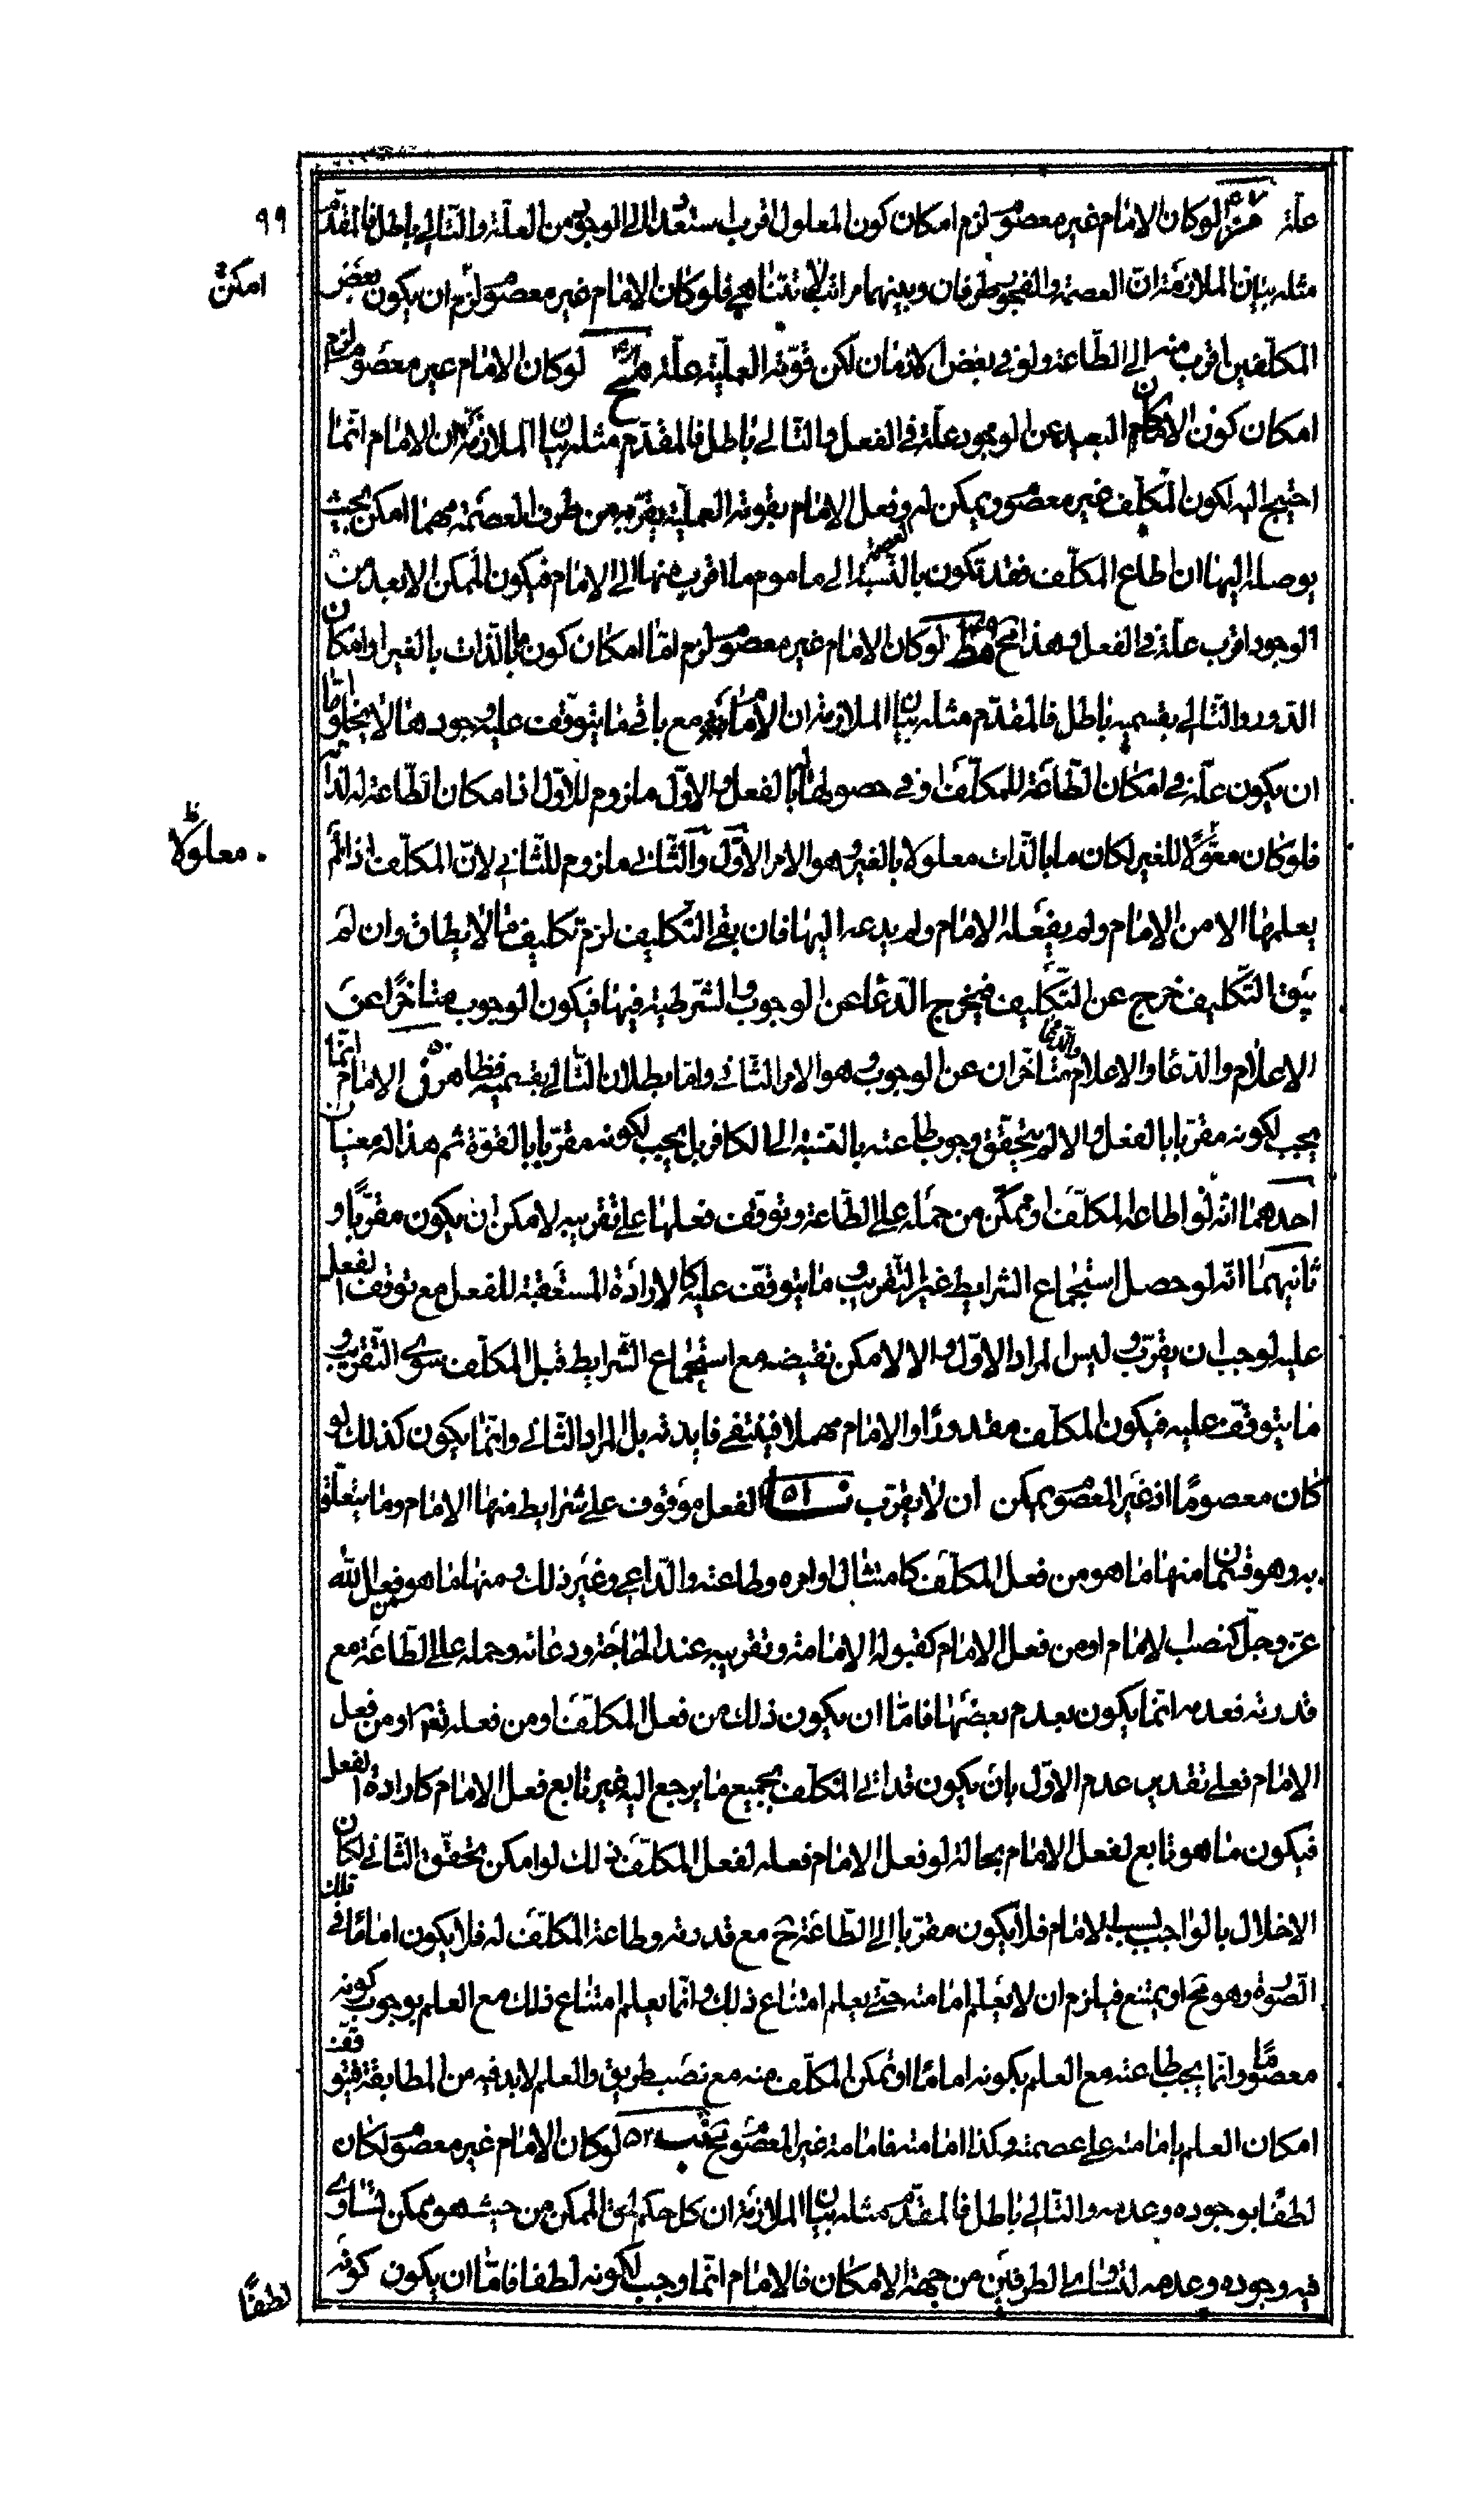 علة مز لو كان الامام غير معصوم لزم امكان كون المعلول اقرب استعدادا الى الوجود من العلة والتالى باطل فالمقدم
٩٩
مثله بيان الملازمة ان العصمة والفجور طرفان وبينهما مراتب لا تتناهى فلو كان الامام غير معصوم لزم ان يكون بعض
امكن
المكلفين اقرب منه الى الطاعة ولو فى بعض الازمان لكن قوته العملية علة مح لو كان الامام غير معصوم لزم
امكان كون الامكان البعيد عن الوجود علة فى الفعل والتالى باطل فالمقدم مثله بيان الملازمة ان الامام انما
احتيج اليه لكون المكلف غير معصوم ويمكن له وفعل الامام بقوته العملية يقربه من طرف العصمة مهما امكن بحيث
يوصله اليها ان اطاع المكلف فقد تكون العصمة بالنسبة الى ماموم ما اقرب منها الى الامام فيكون الممكن الابعد من
الوجود اقرب علة فى الفعل وهذا مح مط ٤٩ لو كان الامام غير معصوم لزم اما امكان كون ما بالذات بالغير او امكان
الدور والتالى بقسميه باطل فالمقدم مثله بيان الملازمة ان الامامة مع باقى ما يتوقف عليه وجودها لا يخلو اما
ان يكون علة فى امكان الطاعة للمكلف او فى حصولها بالفعل والاول ملزوم للاول اذ امكان الطاعة له لذاته
فلو كان معلولا للغير لكان ما بالذات معلولا بالغير وهو الامر الاول والثانى ملزوم للثانى لان المكلف اذا لم
معلولا ظ
يعلمها الا من الامام ولم يفعله الامام ولم يدعه اليها فان بقى التكليف لزم تكليف ما لا يطاق وان لم
يبق التكليف خرج عن التكليف فيخرج الدعا عن الوجوب والشرطية فيها فيكون الوجوب متاخرا عن
الاعلام والدعا والاعلام والدعا متاخران عن الوجوب وهو الامر الثانى واما بطلان التالى بقسميه فظاهر ن ٥٠ الامام انما
يجب لكونه مقربا بالفعل والا لم يتحقق وجوب طاعته بالنسبة الى الكافر بل يجب لكونه مقربا بالقوة ثم هذا له معنيان
احدهما انه لو اطاعه المكلف وتمكن من حمله على الطاعة وتوقف فعلها على تقريبه لامكن ان يكون مقربا و
ثانيهما انه لو حصل استجماع الشرايط غير التقريب وما يتوقف عليه كالارادة المستعقبة للفعل مع توقف الفعل
عليه لوجب ان يقرب وليس المراد الاول والا لامكن نقيضه مع استجماع الشرايط قبل المكلف سوى التقريب و
ما يتوقف عليه فيكون المكلف مقدورا والامام مهملا فينتفى فايدته بل المراد الثانى وانما يكون كذلك لو
كان معصوما اذ غير المعصوم يمكن ان لا يقرب نا ٥١ الفعل موقوف على شرايط منها الامام وما يتعلق
به وهو قسمان منها ما هو من فعل المكلف كامتثال اوامره وطاعته والداعى وغير ذلك ومنها ما هو من فعل الله
عز وجل كنصب الامام او من فعل الامام كقبوله الامامة وتقريبه عند الحاجة ودعائه وحمله على الطاعة مع
قدرته فعدمه انما يكون بعدم بعضها فاما ان يكون ذلك من فعل المكلف او من فعله تعالى او من فعل
الامام فعلى تقدير عدم الاول بان يكون قد اتى المكلف بجميع ما يرجع اليه غير تابع فعل الامام كارادة الفعل
فيكون ما هو تابع لفعل الامام بحالة لو فعل الامام فعله لفعل المكلف ذلك لو امكن تحقق الثانى لكان
الاخلال بالواجب بسبب الامام فلا يكون مقربا الى الطاعة ح مع قدرته وطاعة المكلف له فلا يكون اماما فى تلك
الصورة وهو مح او يمتنع فيلزم ان لا يعلم امامته حتى يعلم امتناع ذلك وانما يعلم امتناع ذلك مع العلم بوجوب كونه
معصوما وانما يجب طاعته مع العلم بكونه اماما او تمكن المكلف منه مع نصب طريق والعلم لا بد فيه من المطابقة فيتوقف
امكان العلم بامامته على عصمته وكذا امامته فامامة غير المعصوم مح نب ٥٢ لو كان الامام غير معصوم لكان
لطفا بوجوده وعدمه والتالى باطل فالمقدم مثله بيان الملازمة ان كل حكم لحق الممكن من حيث هو ممكن تساوى
فيه وجوده وعدمه لتساوى الطرفين من جهة الامكان فالامام انما وجب لكونه لطفا فاما ان يكون كونه
لطفا